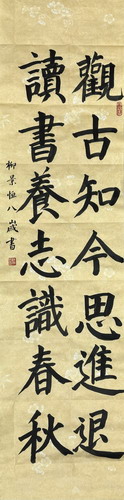 觀古知今思進退
讀書養志識春秋
柳景恒八歲書